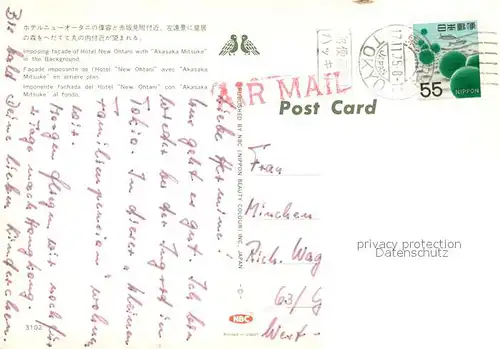 ホテルニューオータニの偉容と赤坂見附付近、左遠景に皇居
の森をへだてて丸の内付近が望まれる。
Imposing façade of Hotel New Ohtani with "Akasaka Mitsuke" in
the Background.
Façade imposante de l'Hotel "New Ohtani" avec "Akasaka
Mitsuke" en arrière plan.
Imponente fachada del Hotel "New Ohtani" con "Akasaka
Mitsuke" al fondo.
AIR MAIL
Post Card
TOKYO
日本郵便
55
NIPPON
PUBLISHED BY NBC (NIPPON BEAUTY COLOUR) INC., JAPAN
NBC
3102
Liebe Hermine!
Uns geht es gut. Ich bin
wieder bei der Ingrid in
Tokio. In dieser "kleinen
Familienpension" wohnen
wir.
Morgen fliegen wir noch für
Tage nach Hongkong.
Deine lieben
Bis bald
Frau
München
Rich. Wag
63/G
West-
privacy protection
Datenschutz